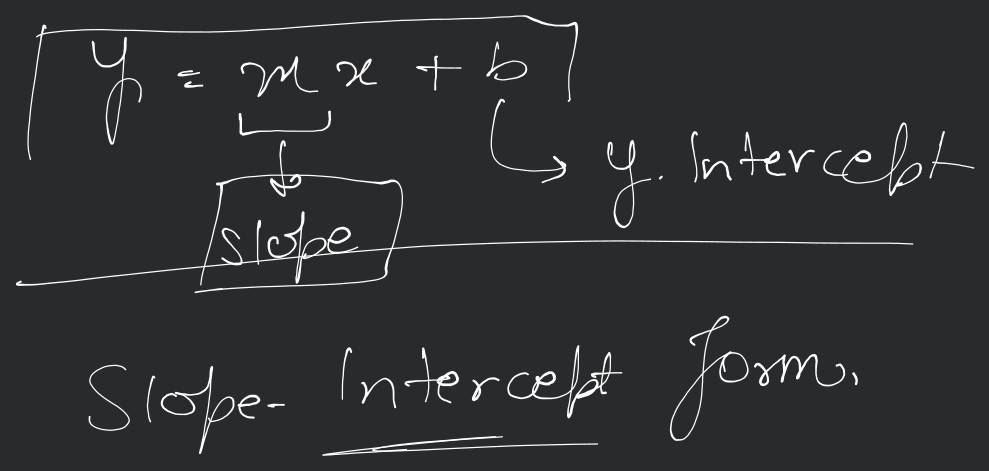 y = mx + b
y. Intercept
slope
Slope- Intercept form.